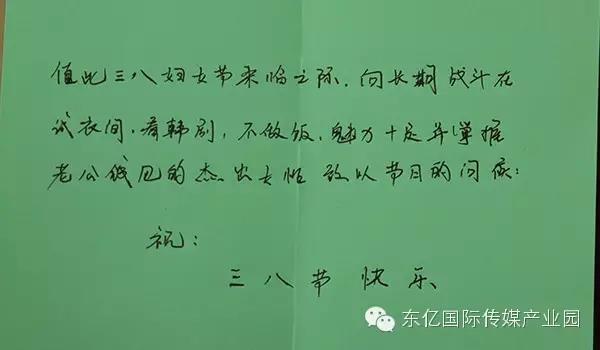 值此三八妇女节来临之际，向长期战斗在
试衣间，看韩剧，不做饭，魅力十足并掌握
老公钱包的杰出女性致以节日的问候：
祝：
三八节快乐
东亿国际传媒产业园